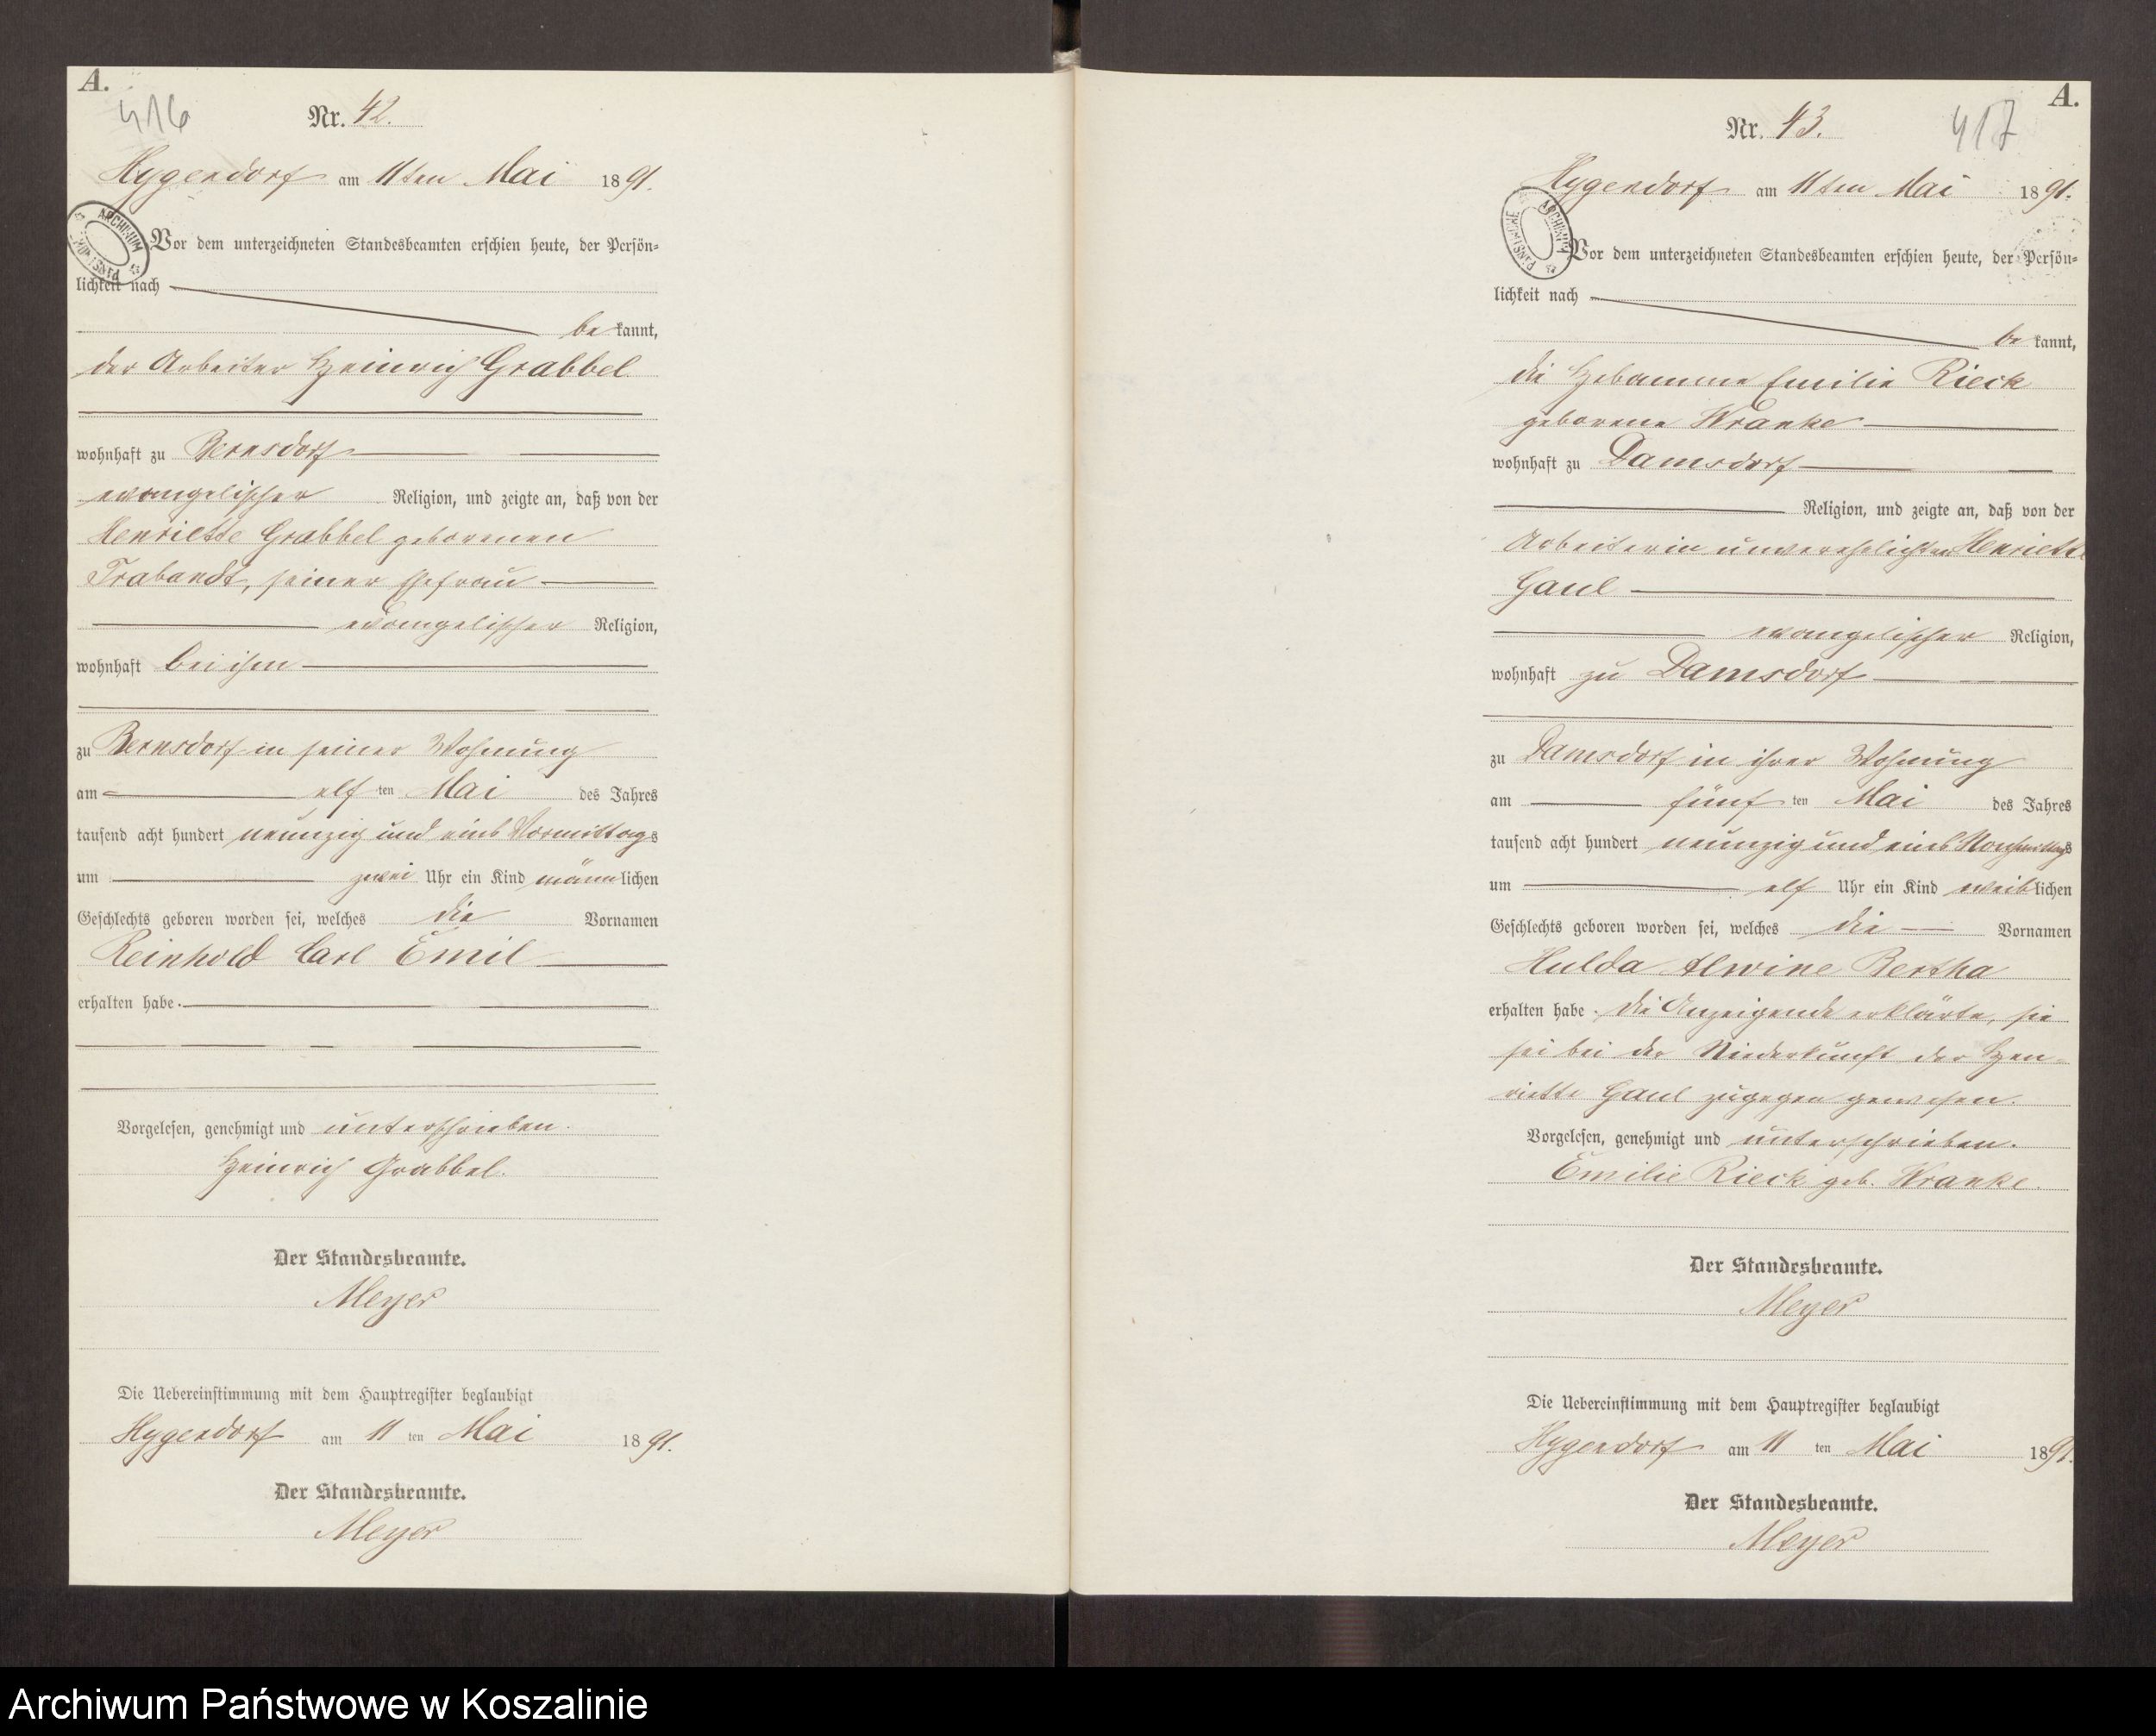 A.
416
Nr. 42.
Hygendorf am 11ten Mai 1891.
Vor dem unterzeichneten Standesbeamten erschien heute, der Persön=
lichkeit nach
be kannt,
der Arbeiter Heinrich Grabbel
wohnhaft zu Bernsdorf
evangelischer Religion, und zeigte an, daß von der
Henriette Grabbel geborenen
Trabandt, seiner Ehefrau
evangelischer Religion,
wohnhaft bei ihm
zu Bernsdorf in seiner Wohnung
am elf ten Mai des Jahres
tausend acht hundert neunzig und eins Vormittags
um zwei Uhr ein Kind männlichen
Geschlechts geboren worden sei, welches die Vornamen
Reinhold Carl Emil
erhalten habe.
Vorgelesen, genehmigt und unterschrieben.
Heinrich Grabbel.
Der Standesbeamte.
Meyer
Die Uebereinstimmung mit dem Hauptregister beglaubigt
Hygendorf am 11 ten Mai 1891.
Der Standesbeamte.
Meyer
A.
417
Nr. 43.
Hygendorf am 11ten Mai 1891.
Vor dem unterzeichneten Standesbeamten erschien heute, der Persön=
lichkeit nach
be kannt,
die Hebamme Emilie Rieck
geborene Wranke
wohnhaft zu Damsdorf
Religion, und zeigte an, daß von der
Arbeiterin unverehelichten Henriette
Gaul
evangelischer Religion,
wohnhaft zu Damsdorf
zu Damsdorf in ihrer Wohnung
am fünf ten Mai des Jahres
tausend acht hundert neunzig und eins Nachmittags
um elf Uhr ein Kind weiblichen
Geschlechts geboren worden sei, welches die Vornamen
Hulda Alwine Bertha
erhalten habe. Die Anzeigende erklärte, sie
sei bei der Niederkunft der Hen=
riette Gaul zugegen gewesen.
Vorgelesen, genehmigt und unterschrieben.
Emilie Rieck geb. Wranke.
Der Standesbeamte.
Meyer
Die Uebereinstimmung mit dem Hauptregister beglaubigt
Hygendorf am 11 ten Mai 1891.
Der Standesbeamte.
Meyer
Archiwum Państwowe w Koszalinie